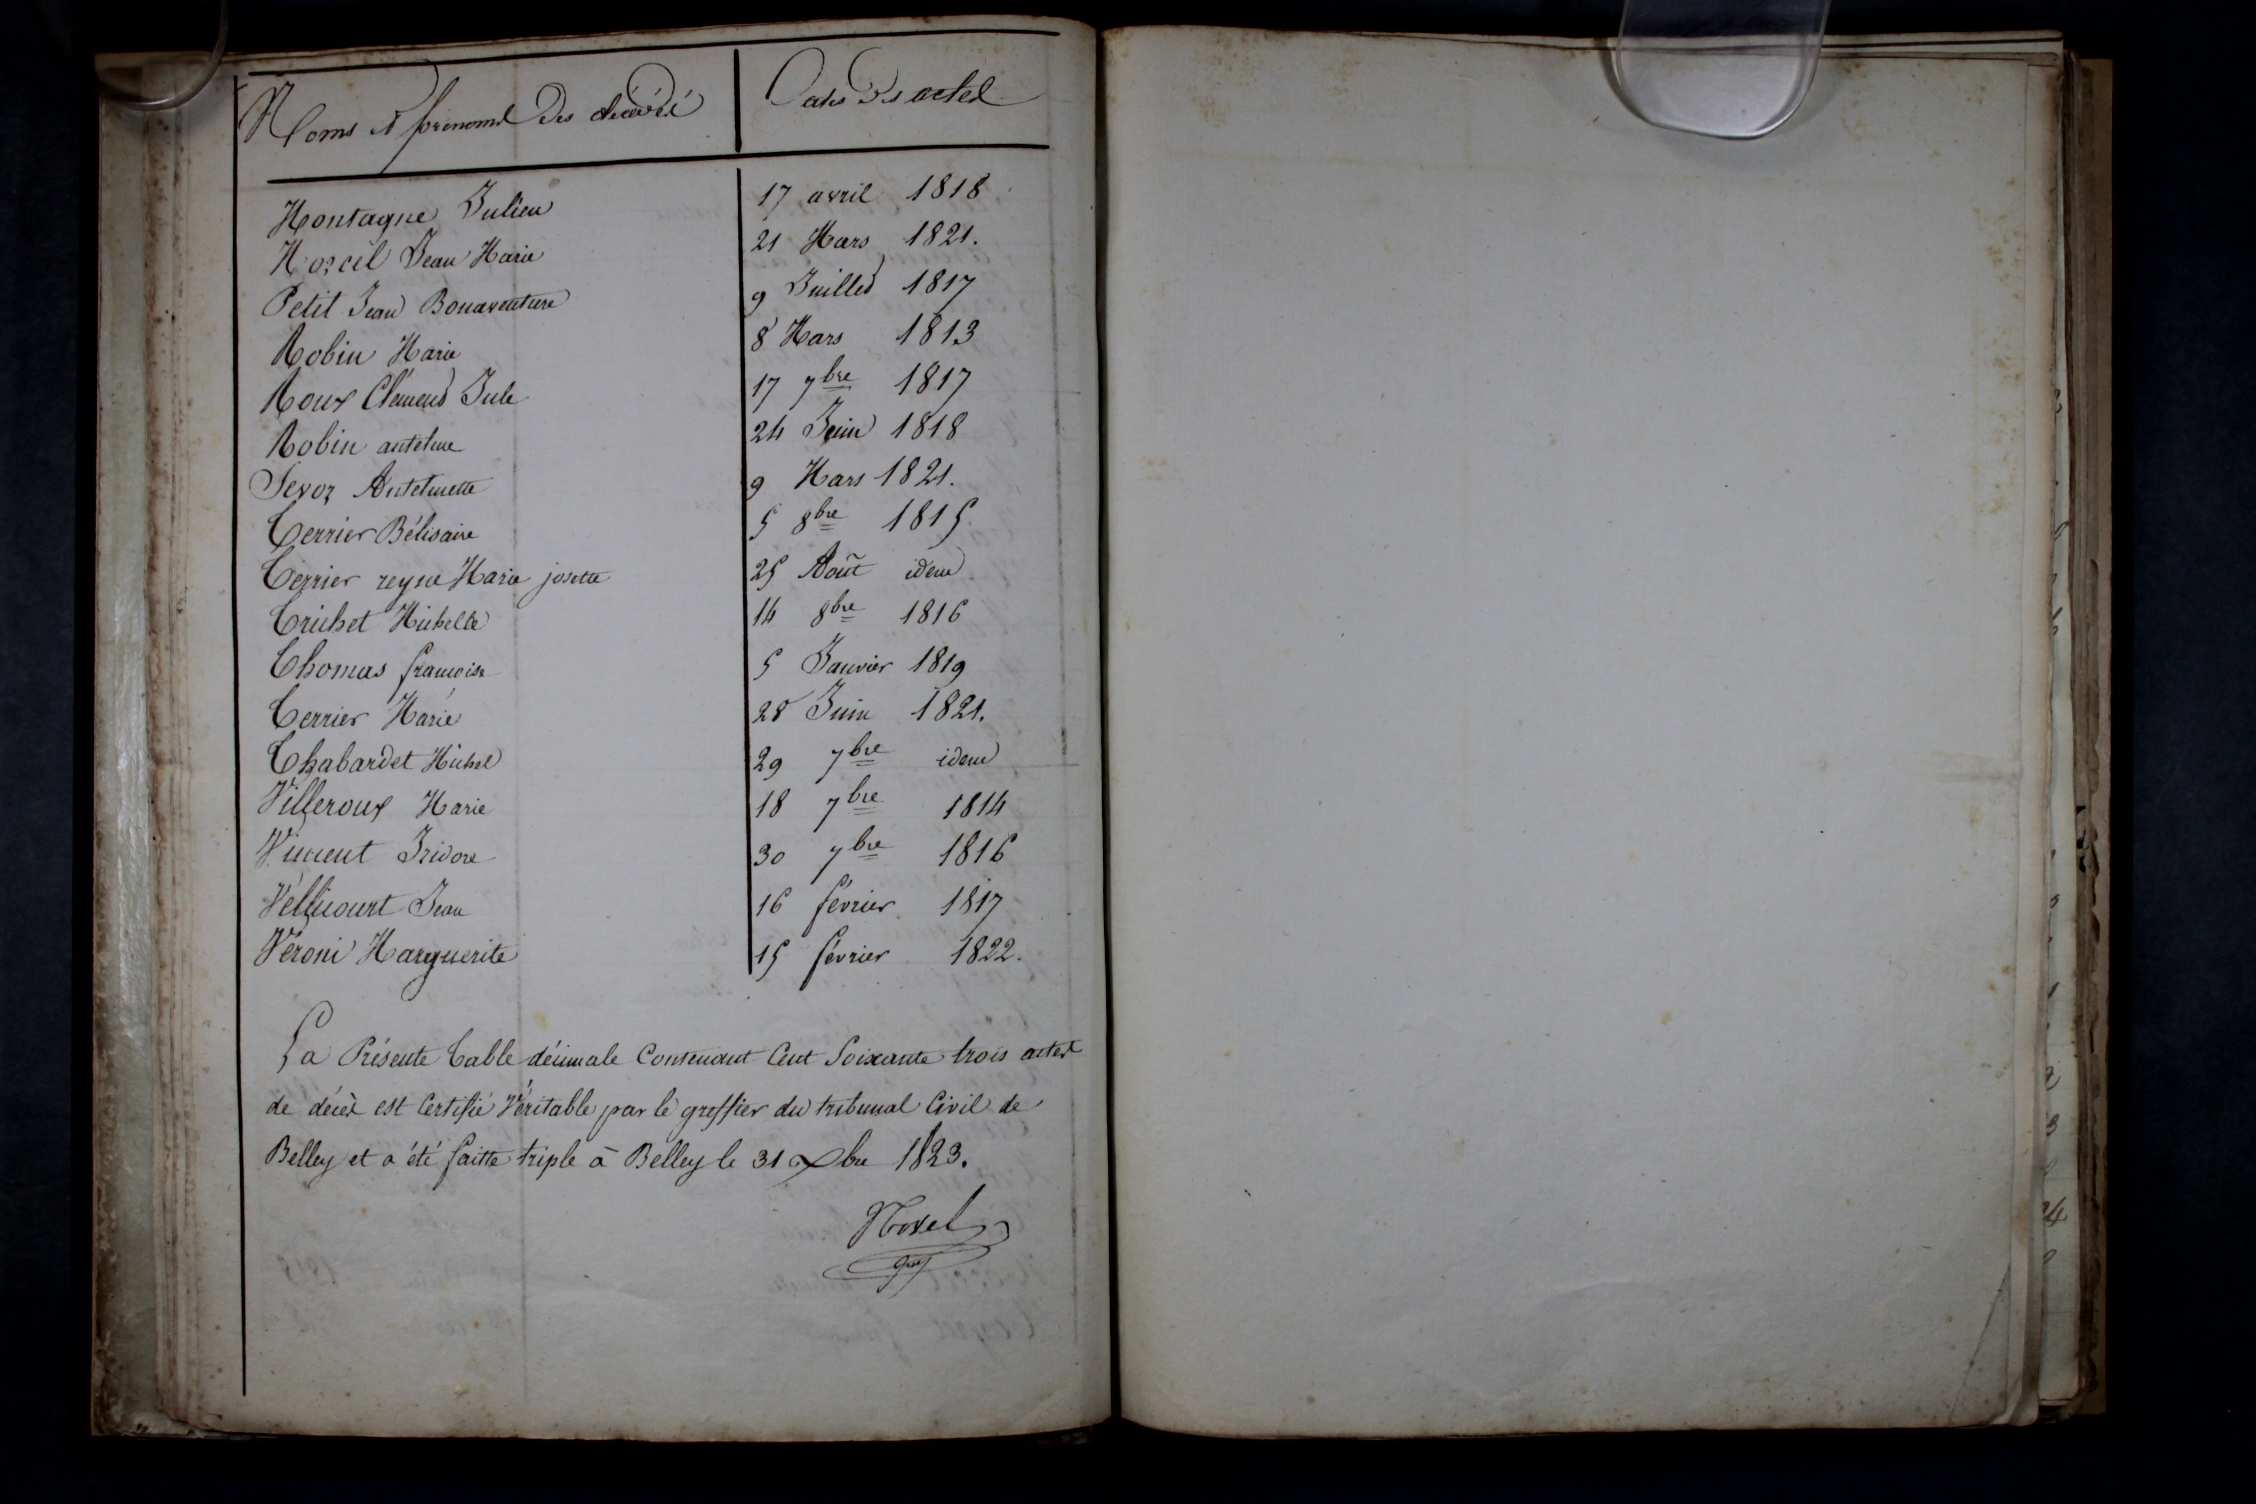 Noms et prénoms des décédés Dates des actes
Montagne Julien 17 avril 1818
Morcel Jean Marie 21 Mars 1821.
Petit Jean Bonaventure 9 Juillet 1817
Robin Marie 8 Mars 1813
Roux Clément Jule 17 7bre 1817
Robin antelme 24 Juin 1818
Sevoz Antelmette 9 Mars 1821.
Terrier Bélisaire 5 8bre 1815
Terrier reyne Marie josette 25 Août idem
Trichet Michelle 14 8bre 1816
Thomas françoise 5 Janvier 1819
Terrier Marie 28 Juin 1821.
Thabardet Michel 29 7bre idem
Villeroux Marie 18 7bre 1814
Vincent Isidore 30 7bre 1816
Vellicourt Jean 16 février 1817
Véroni Marguerite 15 février 1822.
La Présente Table décimale Contenant Cent Soixante trois actes
de décès est Certifié Véritable par le greffier du tribunal Civil de
Belley et a été faitte triple à Belley le 31 Xbre 1823.